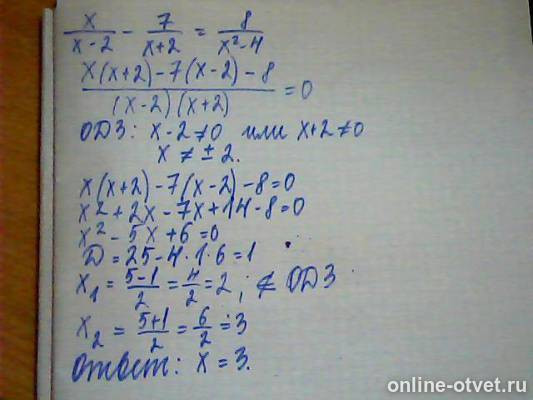 x/(x-2) - 7/(x+2) = 8/(x²-4)
(x(x+2)-7(x-2)-8)/((x-2)(x+2)) = 0
ОДЗ: x-2≠0 или x+2≠0
x ≠ ±2.
x(x+2)-7(x-2)-8=0
x²+2x-7x+14-8=0
x²-5x+6=0
D=25-4·1·6=1
x₁ = (5-1)/2 = 4/2 = 2; ⊄ ОДЗ
x₂ = (5+1)/2 = 6/2 = 3
Ответ: x=3.
online-otvet.ru